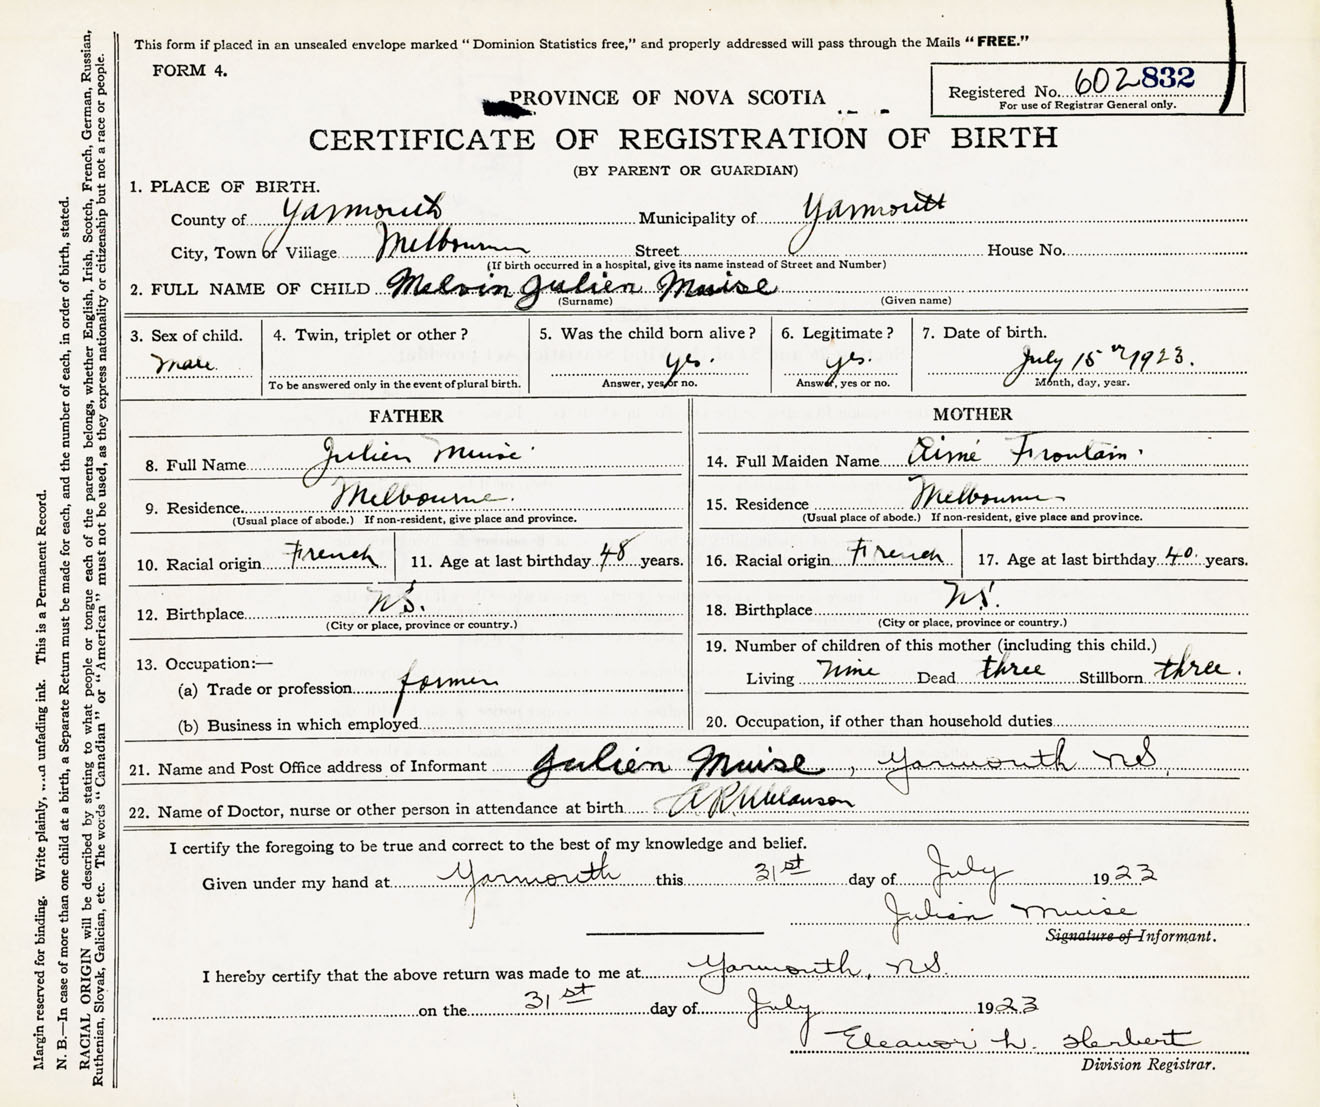 This form if placed in an unsealed envelope marked "Dominion Statistics free," and properly addressed will pass through the Mails "FREE."
FORM 4.
Registered No. 602832
For use of Registrar General only.
PROVINCE OF NOVA SCOTIA
CERTIFICATE OF REGISTRATION OF BIRTH
(BY PARENT OR GUARDIAN)
1. PLACE OF BIRTH.
County of Yarmouth Municipality of Yarmouth
City, Town or Village Melbourne Street House No.
(If birth occurred in a hospital, give its name instead of Street and Number)
2. FULL NAME OF CHILD Melvin Julien Muise
(Surname) (Given name)
3. Sex of child. Male.
4. Twin, triplet or other?
To be answered only in the event of plural birth.
5. Was the child born alive? yes.
Answer, yes or no.
6. Legitimate? yes.
Answer, yes or no.
7. Date of birth. July 15th 1923.
Month, day, year.
FATHER
8. Full Name Julien Muise
9. Residence. Melbourne.
(Usual place of abode.) If non-resident, give place and province.
10. Racial origin French 11. Age at last birthday 48 years.
12. Birthplace N.S.
(City or place, province or country.)
13. Occupation:—
(a) Trade or profession farmer
(b) Business in which employed
MOTHER
14. Full Maiden Name Aimé Frontain
15. Residence Melbourne
(Usual place of abode.) If non-resident, give place and province.
16. Racial origin French 17. Age at last birthday 40. years.
18. Birthplace N.S.
(City or place, province or country.)
19. Number of children of this mother (including this child.)
Living Nine Dead three Stillborn three.
20. Occupation, if other than household duties
21. Name and Post Office address of Informant Julien Muise, Yarmouth N.S.
22. Name of Doctor, nurse or other person in attendance at birth
I certify the foregoing to be true and correct to the best of my knowledge and belief.
Given under my hand at Yarmouth this 31st day of July 1923
Julien Muise
Signature of Informant.
I hereby certify that the above return was made to me at Yarmouth, N.S.
on the 31st day of July 1923
Eleanor L. Herbert
Division Registrar.
Margin reserved for binding. Write plainly, unfading ink. This is a Permanent Record.
N. B.—In case of more than one child at a birth, a Separate Return must be made for each, and the number of each, in order of birth, stated.
RACIAL ORIGIN will be described by stating to what people or tongue each of the parents belongs, whether English, Irish, Scotch, French, German, Russian,
Ruthenian, Slovak, Galician, etc. The words "Canadian" or "American" must not be used, as they express nationality or citizenship but not a race or people.